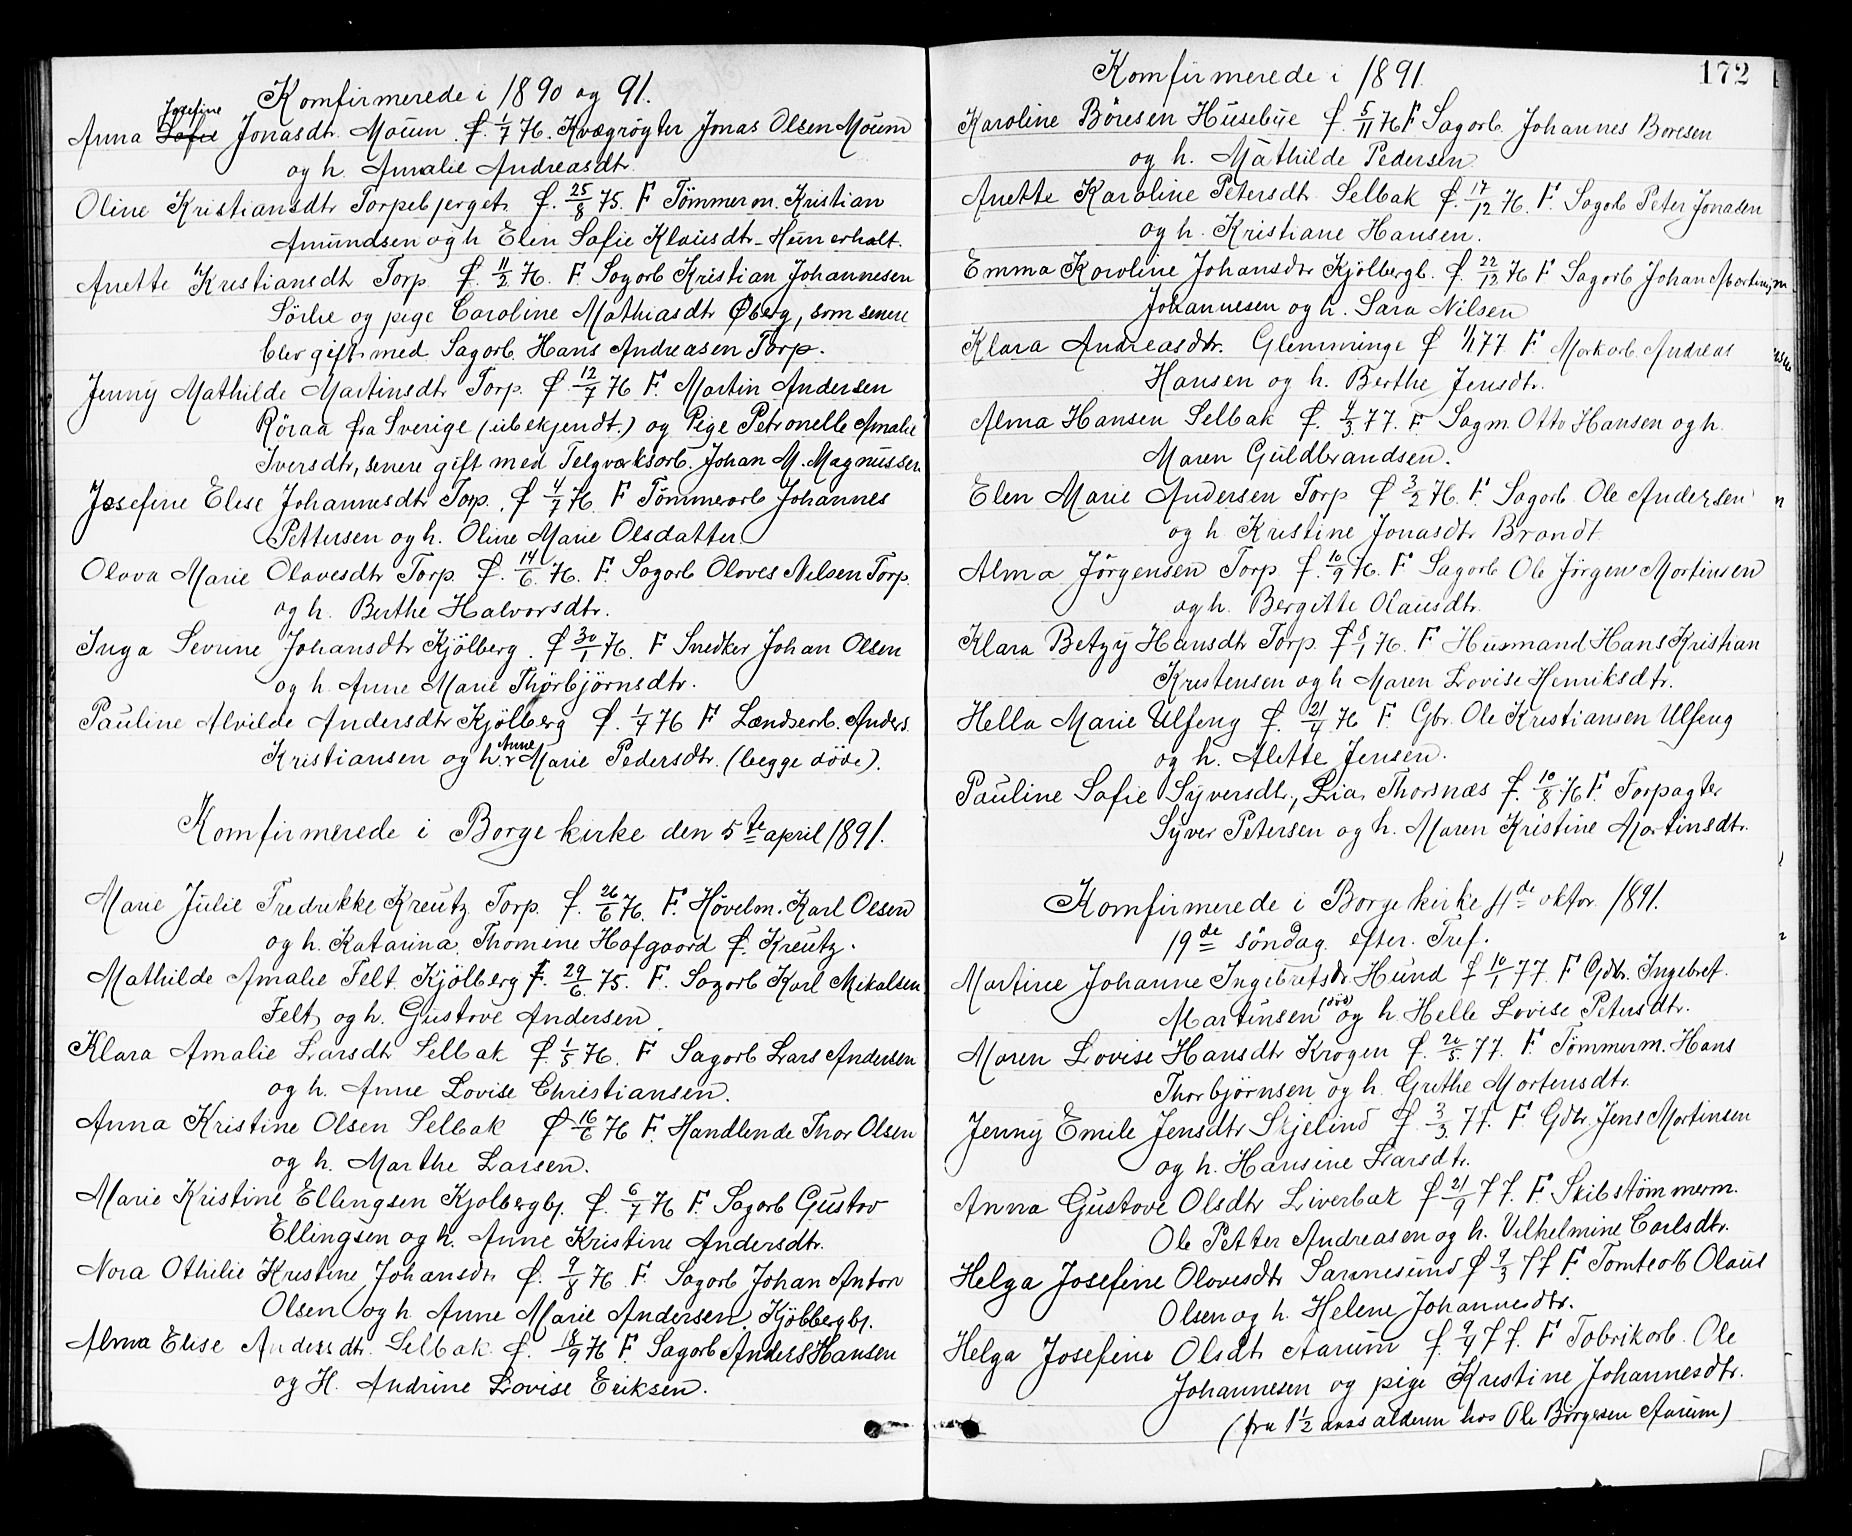 Komfirmerede i 1890 og 91.
Josefine
Anna Sofie Jonasdtr. Moum. f. 1/7 76. Kvægrögter Jonas Olsen Moum
og h. Amalie Andreasdtr.
Oline Kristiansdtr Torpebjerget. f. 25/8 75. F Tömmerm. Kristian
Amundsen og h Elen Sofie Klausdtr - Hun erholt.
Anette Kristiansdtr Torp f. 11/2 76. F. Sagarb Kristian Johannesen
Sörlie og pige Caroline Mathiasdtr Øberg, som senere
blev gift med Sagarb. Hans Andreasen Torp.
Jenny Mathilde Martinsdtr Torp. f. 12/7 76 F. Martin Andersen
Röraa fra Sverige (ubekjendt.) og Pige Petronelle Amalie
Iversdtr, senere gift med Telgværksarb. Johan M. Magnussen
Josefine Elise Johannesdtr Torp. f 4/7 76. F Tömmerarb Johannes
Pettersen og h. Oline Marie Olsdatter.
Olava Marie Olavesdtr Torp. f. 14/6 76. F. Sagarb Olaves Nilsen Torp.
og h. Berthe Halvorsdtr.
Inga Sevrine Johansdtr Kjölberg. f 30/1 76. F Snedker Johan Olsen
og h. Anne Marie Thorbjörnsdtr.
Pauline Alvilde Andersdtr Kjölberg f. 1/7 76 F Lændsearb. Anders
Anne
Kristiansen og h. Marie Pedersdtr. (begge döde).
Komfirmerede i Borge kirke den 5te april 1891.
Marie Julie Fredrikke Kreutz Torp. f. 26/6 76. F. Hövelm. Karl Olsen
og h. Katarina Thomine Hofgaard f. Kreutz.
Mathilde Amalie Felt Kjölberg f. 29/6 75. F. Sagarb Karl Mikalsen
Felt og h. Gustave Andersen.
Klara Amalie Larsdtr Selbak f. 1/5 76. F Sagarb Lars Andersen
og h. Anne Lovise Christiansen.
Anna Kristine Olsen Selbak f 16/6 76 F. Handlende Thor Olsen
og h. Marthe Larsen.
Marie Kristine Ellingsen Kjolbergbj. f. 6/7 76 F. Sagarb Gustav
Ellingsen og h. Anne Kristine Andersdtr.
Nora Othilie Kristine Johansdtr f. 9/8 76 F. Sagarb Johan Anton
Olsen og h. Anne Marie Andersen. Kjölbergbj.
Alma Elise Andersdtr. Selbak f. 18/9 76 F. Sagarb Anders Hansen
og H. Andrine Lovise Eriksen.
172
Komfirmerede i 1891.
Karoline Böresen Husebye f. 5/11 76 F Sagarb. Johannes Boresen
og h. Mathilde Pedersen
Anette Karoline Petersdtr Selbak f. 17/12 76. F. Sagarb Peter Jonasen
og h. Kristiane Hansen.
Emma Karoline Johansdtr Kjölbergb. f. 22/12 76 F Sagarb Johan Martin
Johannesen og h. Sara Nilsen
Klara Andreasdtr. Glemminge f 1/1 77 F. Murarb. Andreas
Hansen og h. Berthe Jensdtr.
Alma Hansen Selbak f. 4/3 77. F. Sagm. Otto Hansen og h.
Maren Guldbrandsen.
Elen Marie Andersen Torp f 3/2 76. F. Sagarb. Ole Andersen
og h Kristine Jonasdtr Brandt
Alma Jörgensen Torp f. 10/9 76. F Sagarb Ole Jörgen Mortinsen
og h. Bergitte Olausdtr.
Klara Betzy Hansdtr Torp. f 8/1 76. F Husmand Hans Kristian
Kristensen og h Maren Lovise Henriksdtr.
Hella Marie Ulfeng f. 21/4 76 F. Gbr. Ole Kristiansen Ulfeng
og h. Alette Jensen.
Pauline Sofie Syversdtr., Lia, Thorsnæs f. 10/8 76 F. Forpagter
Syver Petersen og h. Maren Kristine Martinsdtr.
Komfirmerede i Borge kirke 4de oktor 1891.
19de söndag efter. Tref.
Martine Johanne Ingebretsdr. Hund f 10/1 77. F Gdbr. Ingebret
(död)
Martinsen og h. Helle Lovise Petersdtr.
Maren Lovise Hansdtr Krogen f. 20/5 77. F. Tömmerm. Hans
Thorbjörnsen og h. Grethe Mortensdtr.
Jenny Emile Jensdtr Skjelind f. 3/3. 77. F. Gdbr. Jens Martinsen
og h. Hansine Larsdtr.
Anna Gustave Olsdtr Liverbak f 21/9 77. F. Skibstömmerm.
Ole Petter Andreasen og h. Vilhelmine Carlsdtr.
Helga Josefine Olavesdtr Sannesund f 9/3 77 F. Tomtearb Olaus
Olsen og h. Helene Johannesdtr.
Helga Josefine Olsdtr Aarum f. 9/4 77. F Fabrikarb. Ole
Johannesen og pige Kristine Johannesdtr.
(fra 1 1/2 aars alderen hos Ole Börgesen Aarum)